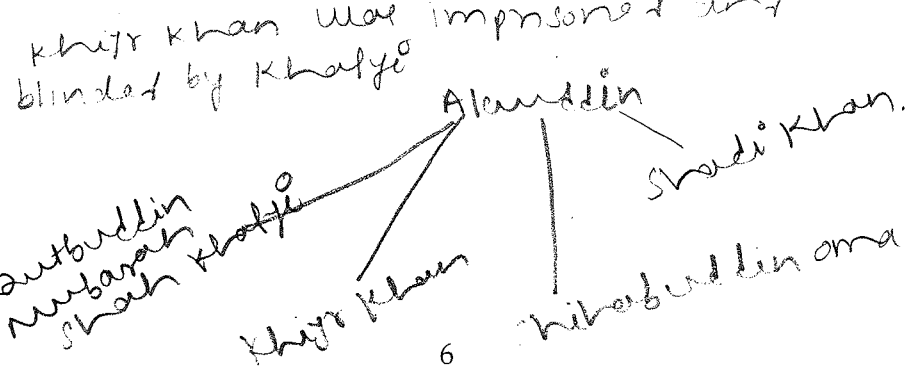 Khijr Khan was imprisoned and
blinded by Khalji
Alauddin
Shadi Khan.
Qutbuddin
Mubarak
Shah Khalji
Khijr Khan
Shihabuddin oma
6